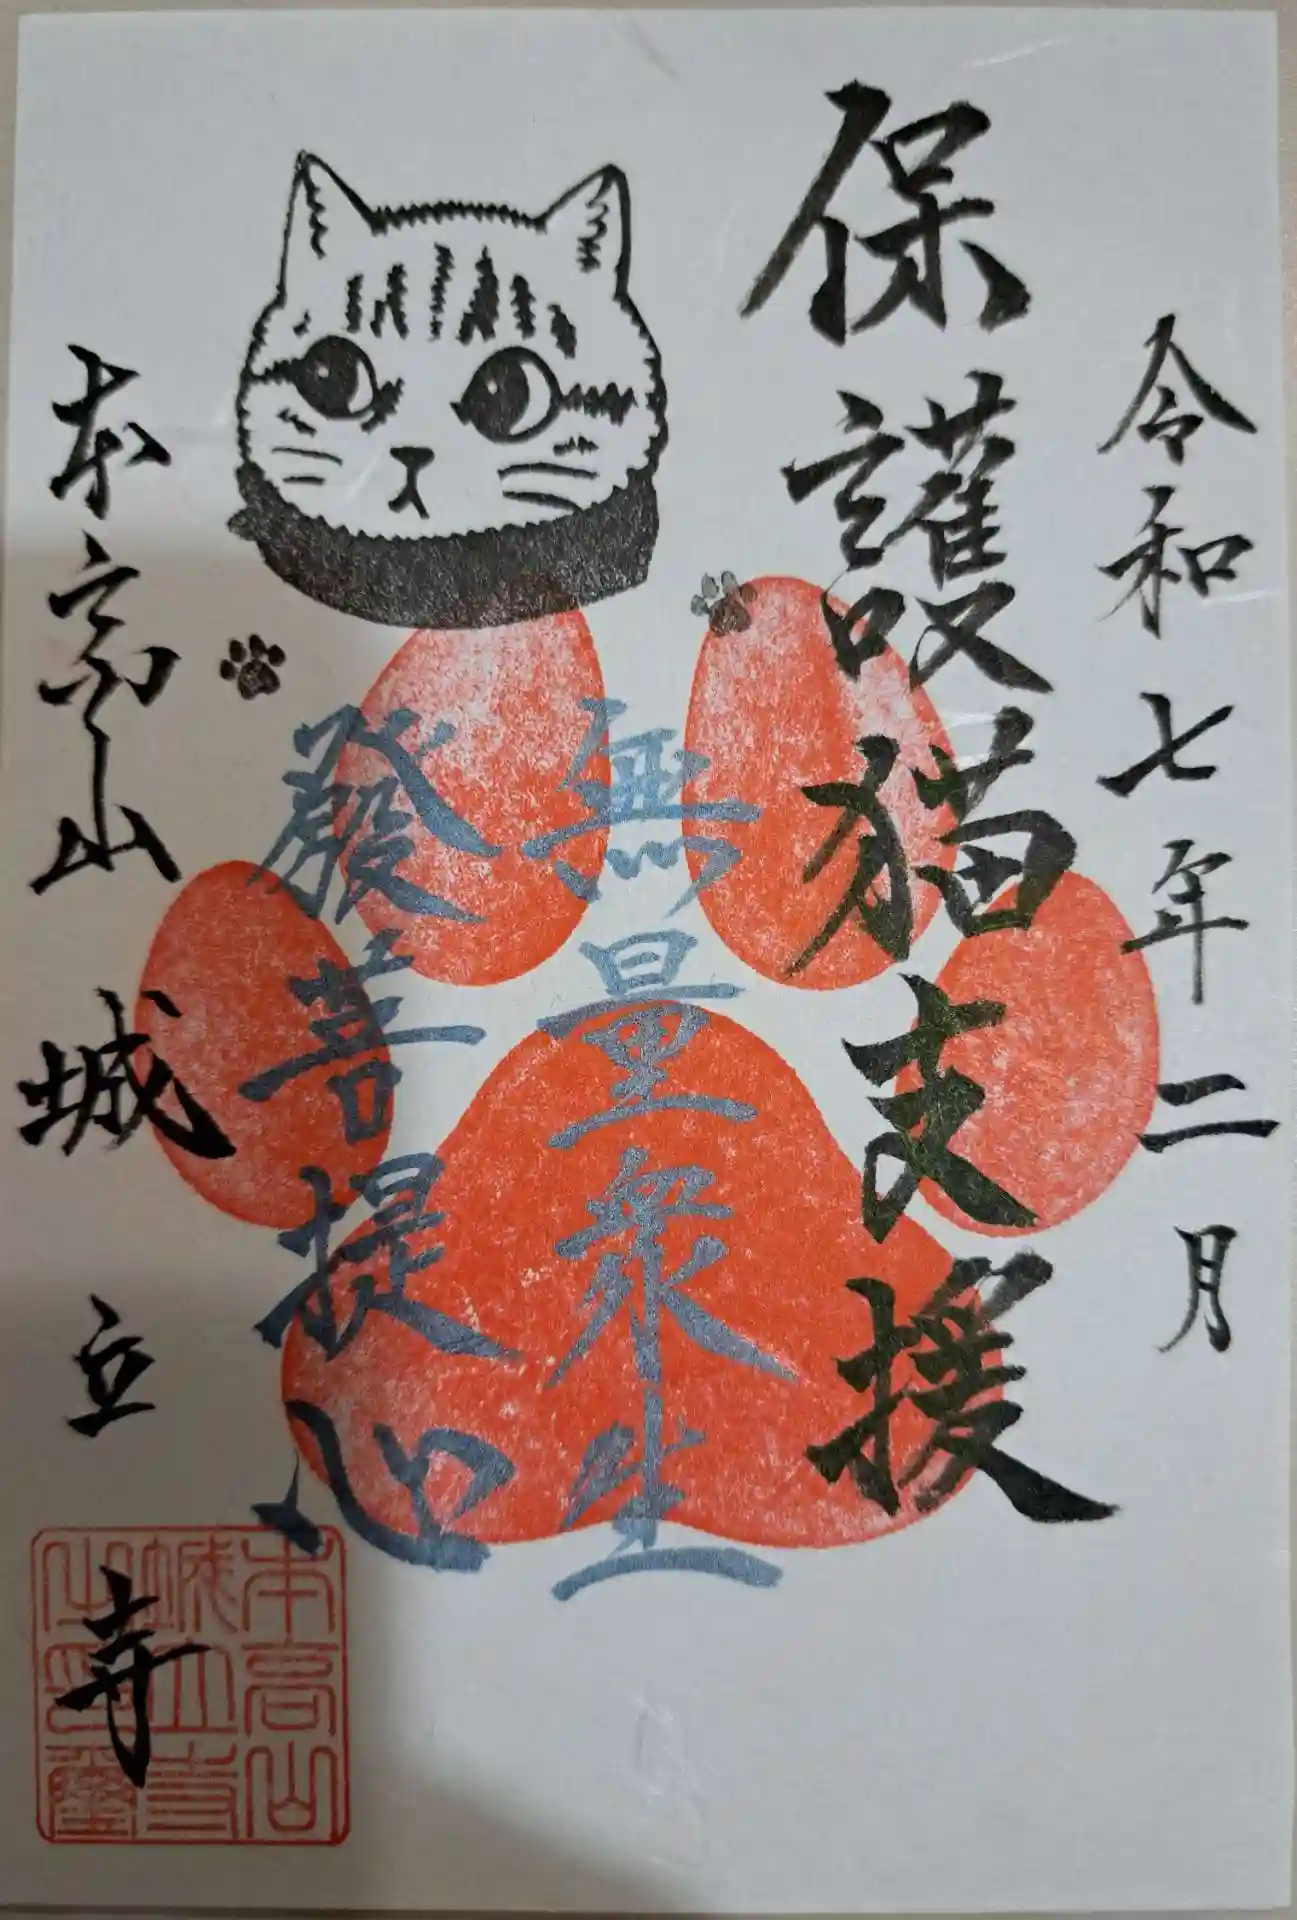 令和七年二月
保護猫支援
無量衆生
發菩提心
本高山 城立寺
本高山
城立寺
之印璽